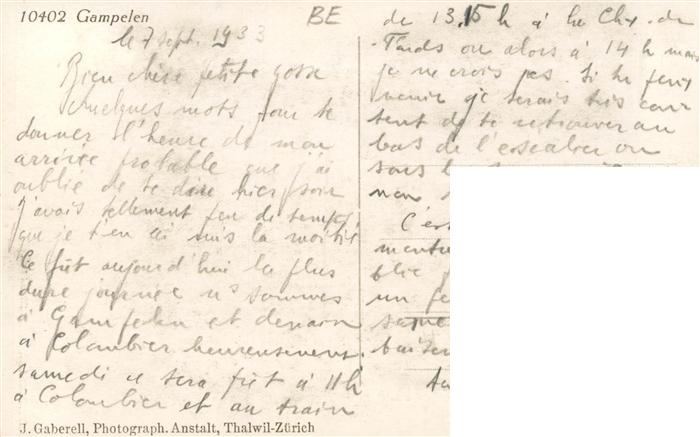 10402 Gampelen
BE
le 7 sept. 1933
Bien chère petite gosse
Quelques mots pour te
donner l'heure de mon
arrivée probable que j'ai
oublié de te dire hier soir
j'avais tellement peu de temps
que je t'en ai mis la moitié
Ce fut aujourd'hui la plus
dure journée ns sommes
à Gampelen et demain
à Colombier heureusement.
samedi ce sera fut à 11h
à Colombier et au train
J. Gaberell, Photograph. Anstalt, Thalwil-Zürich
de 13.15 h à la Chx-de-
-Fonds ou alors à 14 h mais
je ne crois pas. Si tu peux
venir je serais très con-
tent de te retrouver au
bas de l'escalier ou
sous
non
C'est
un
baiser